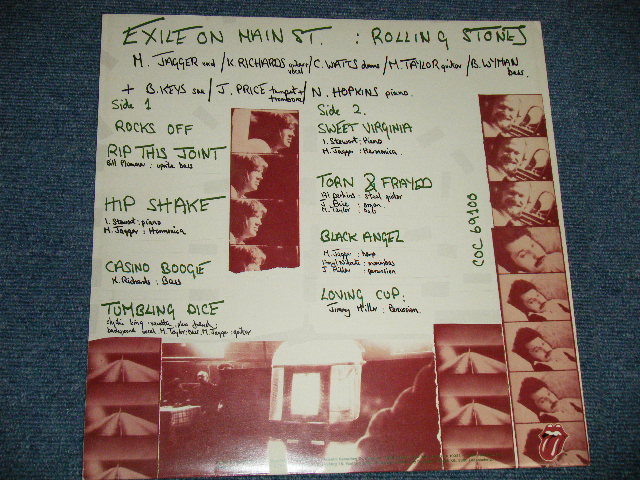 EXILE ON MAIN ST. : ROLLING STONES
M. JAGGER vocal / K. RICHARDS guitar vocal / C. WATTS drums / M. TAYLOR guitar / B. WYMAN bass.
+ B. KEYS sax / J. PRICE trumpet trombone / N. HOPKINS piano.
Side 1
ROCKS OFF
RIP THIS JOINT
Bill Plummer : uprite bass
HIP SHAKE
I. Stewart : piano
M. Jagger : Harmonica
CASINO BOOGIE
K. Richards : Bass
TUMBLING DICE
background vocal M. Taylor : Bass M. Jagger : guitar
Side 2.
SWEET VIRGINIA
I. Stewart : Piano
M. Jagger : Harmonica.
TORN & FRAYED
Al Perkins : Steel guitar
J. Price : organ
M. Taylor : bass
BLACK ANGEL
M. Jagger : harp
: marimbas
J. Miller : percussion
LOVING CUP :
Jimmy Miller : Percussion.
COC 69100